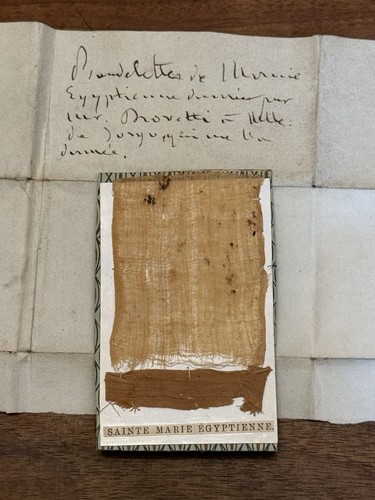 Bandelettes de Momie
Egyptienne données par
Mr. Drovetti à Melle.
de
donnée.
SAINTE MARIE ÉGYPTIENNE.